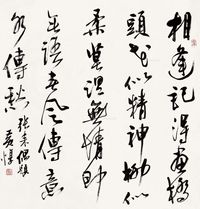 相逢記得畫橋
頭花似精神柳似
柔莫謂無情即
無語春風傳意
水傳愁 張耒偶題